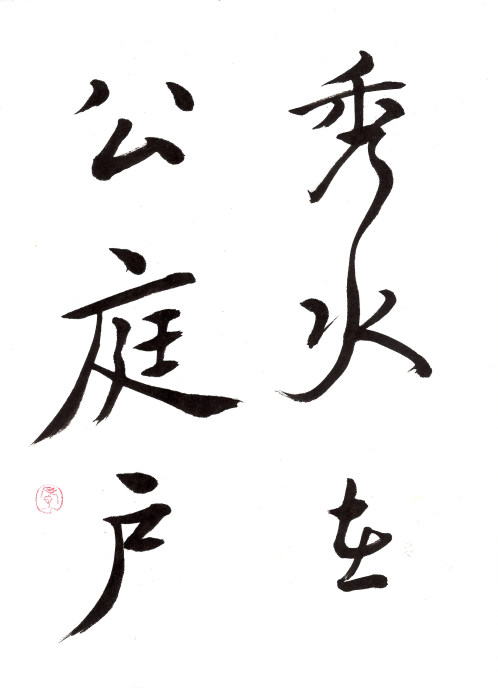 秀水在
公庭戶